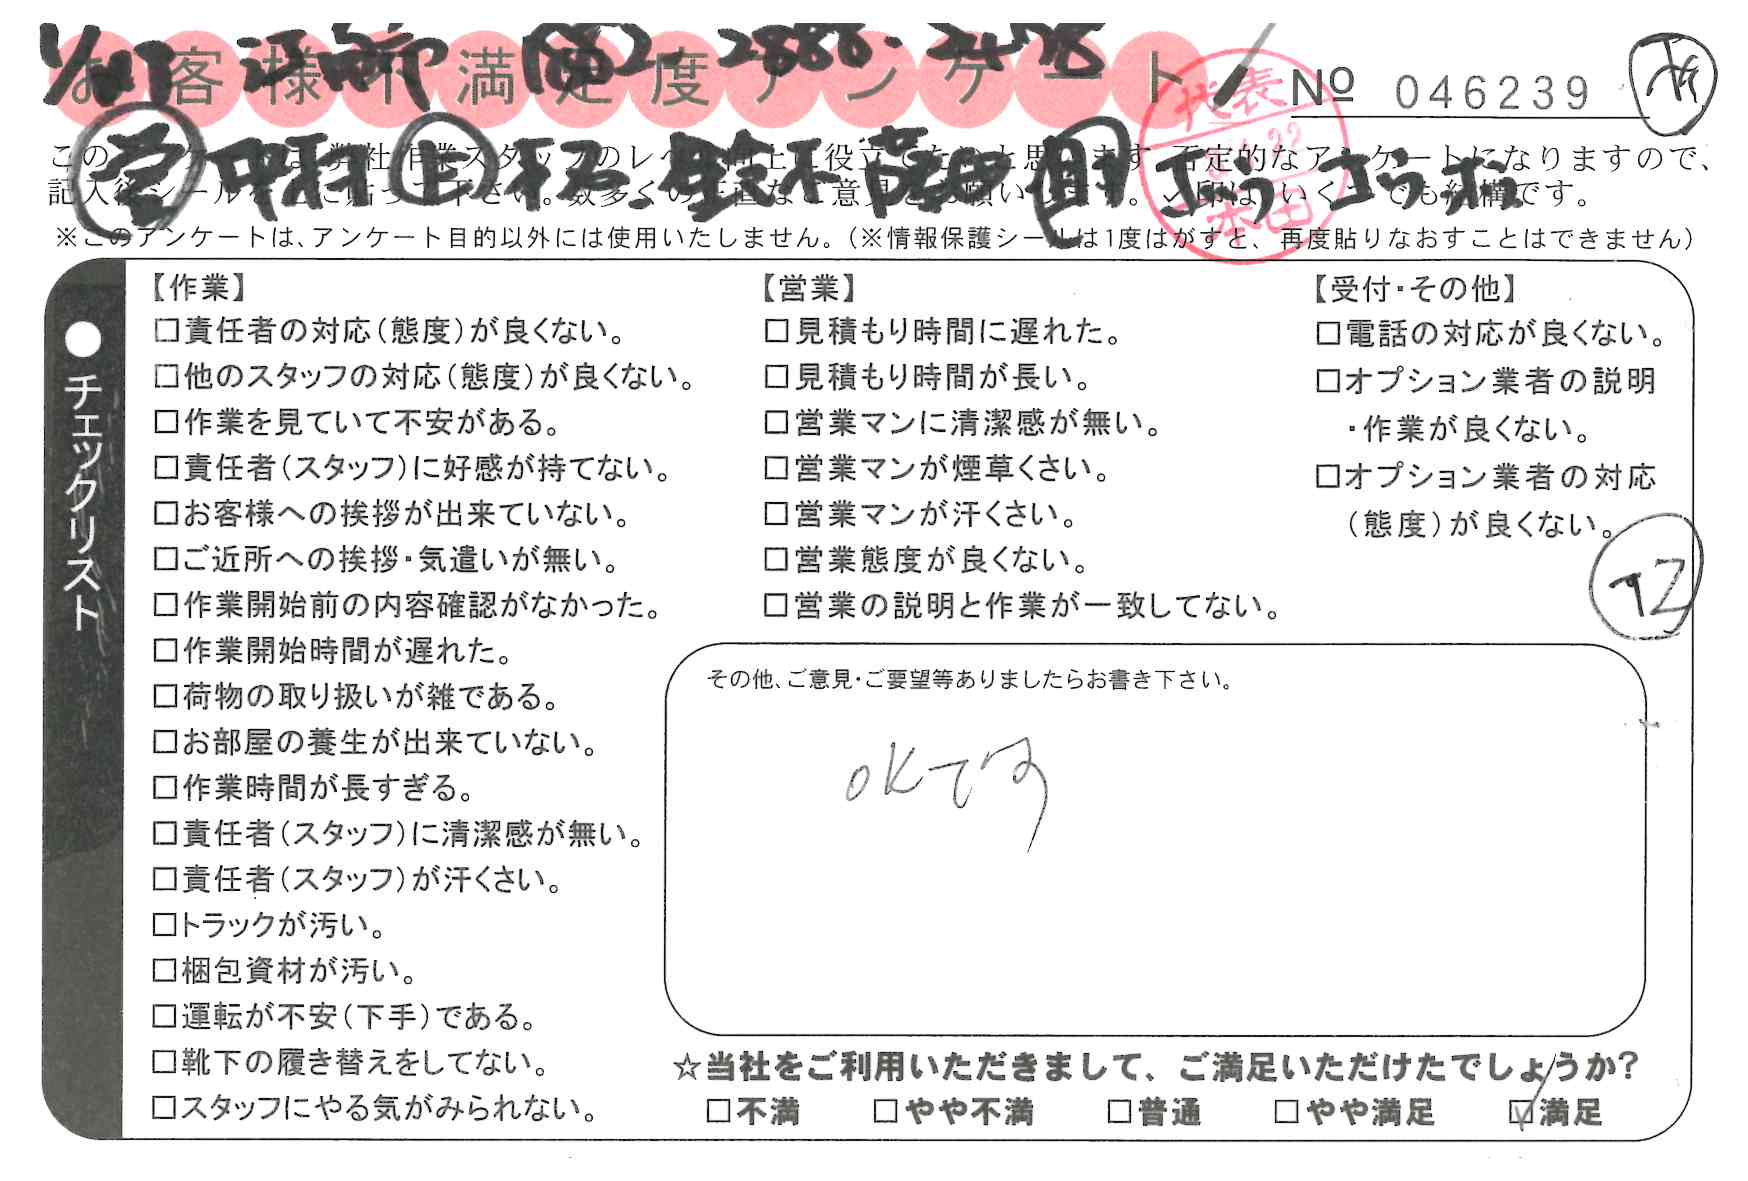 お客様不満足度アンケート
No 046239
このアンケートは、弊社作業スタッフのレベル向上に役立てたいと思います。否定的なアンケートになりますので、
記入後シールを上に貼って下さい。数多くの正直なご意見をお願いします。✓印はいくつでも結構です。
※このアンケートは、アンケート目的以外には使用いたしません。(※情報保護シールは1度はがすと、再度貼りなおすことはできません)
代表
本田
●チェックリスト
【作業】
□責任者の対応(態度)が良くない。
□他のスタッフの対応(態度)が良くない。
□作業を見ていて不安がある。
□責任者(スタッフ)に好感が持てない。
□お客様への挨拶が出来ていない。
□ご近所への挨拶・気遣いが無い。
□作業開始前の内容確認がなかった。
□作業開始時間が遅れた。
□荷物の取り扱いが雑である。
□お部屋の養生が出来ていない。
□作業時間が長すぎる。
□責任者(スタッフ)に清潔感が無い。
□責任者(スタッフ)が汗くさい。
□トラックが汚い。
□梱包資材が汚い。
□運転が不安(下手)である。
□靴下の履き替えをしてない。
□スタッフにやる気がみられない。
【営業】
□見積もり時間に遅れた。
□見積もり時間が長い。
□営業マンに清潔感が無い。
□営業マンが煙草くさい。
□営業マンが汗くさい。
□営業態度が良くない。
□営業の説明と作業が一致してない。
【受付・その他】
□電話の対応が良くない。
□オプション業者の説明
・作業が良くない。
□オプション業者の対応
(態度)が良くない。
その他、ご意見・ご要望等ありましたらお書き下さい。
OKです
☆当社をご利用いただきまして、ご満足いただけたでしょうか?
□不満 □やや不満 □普通 □やや満足 ☑満足